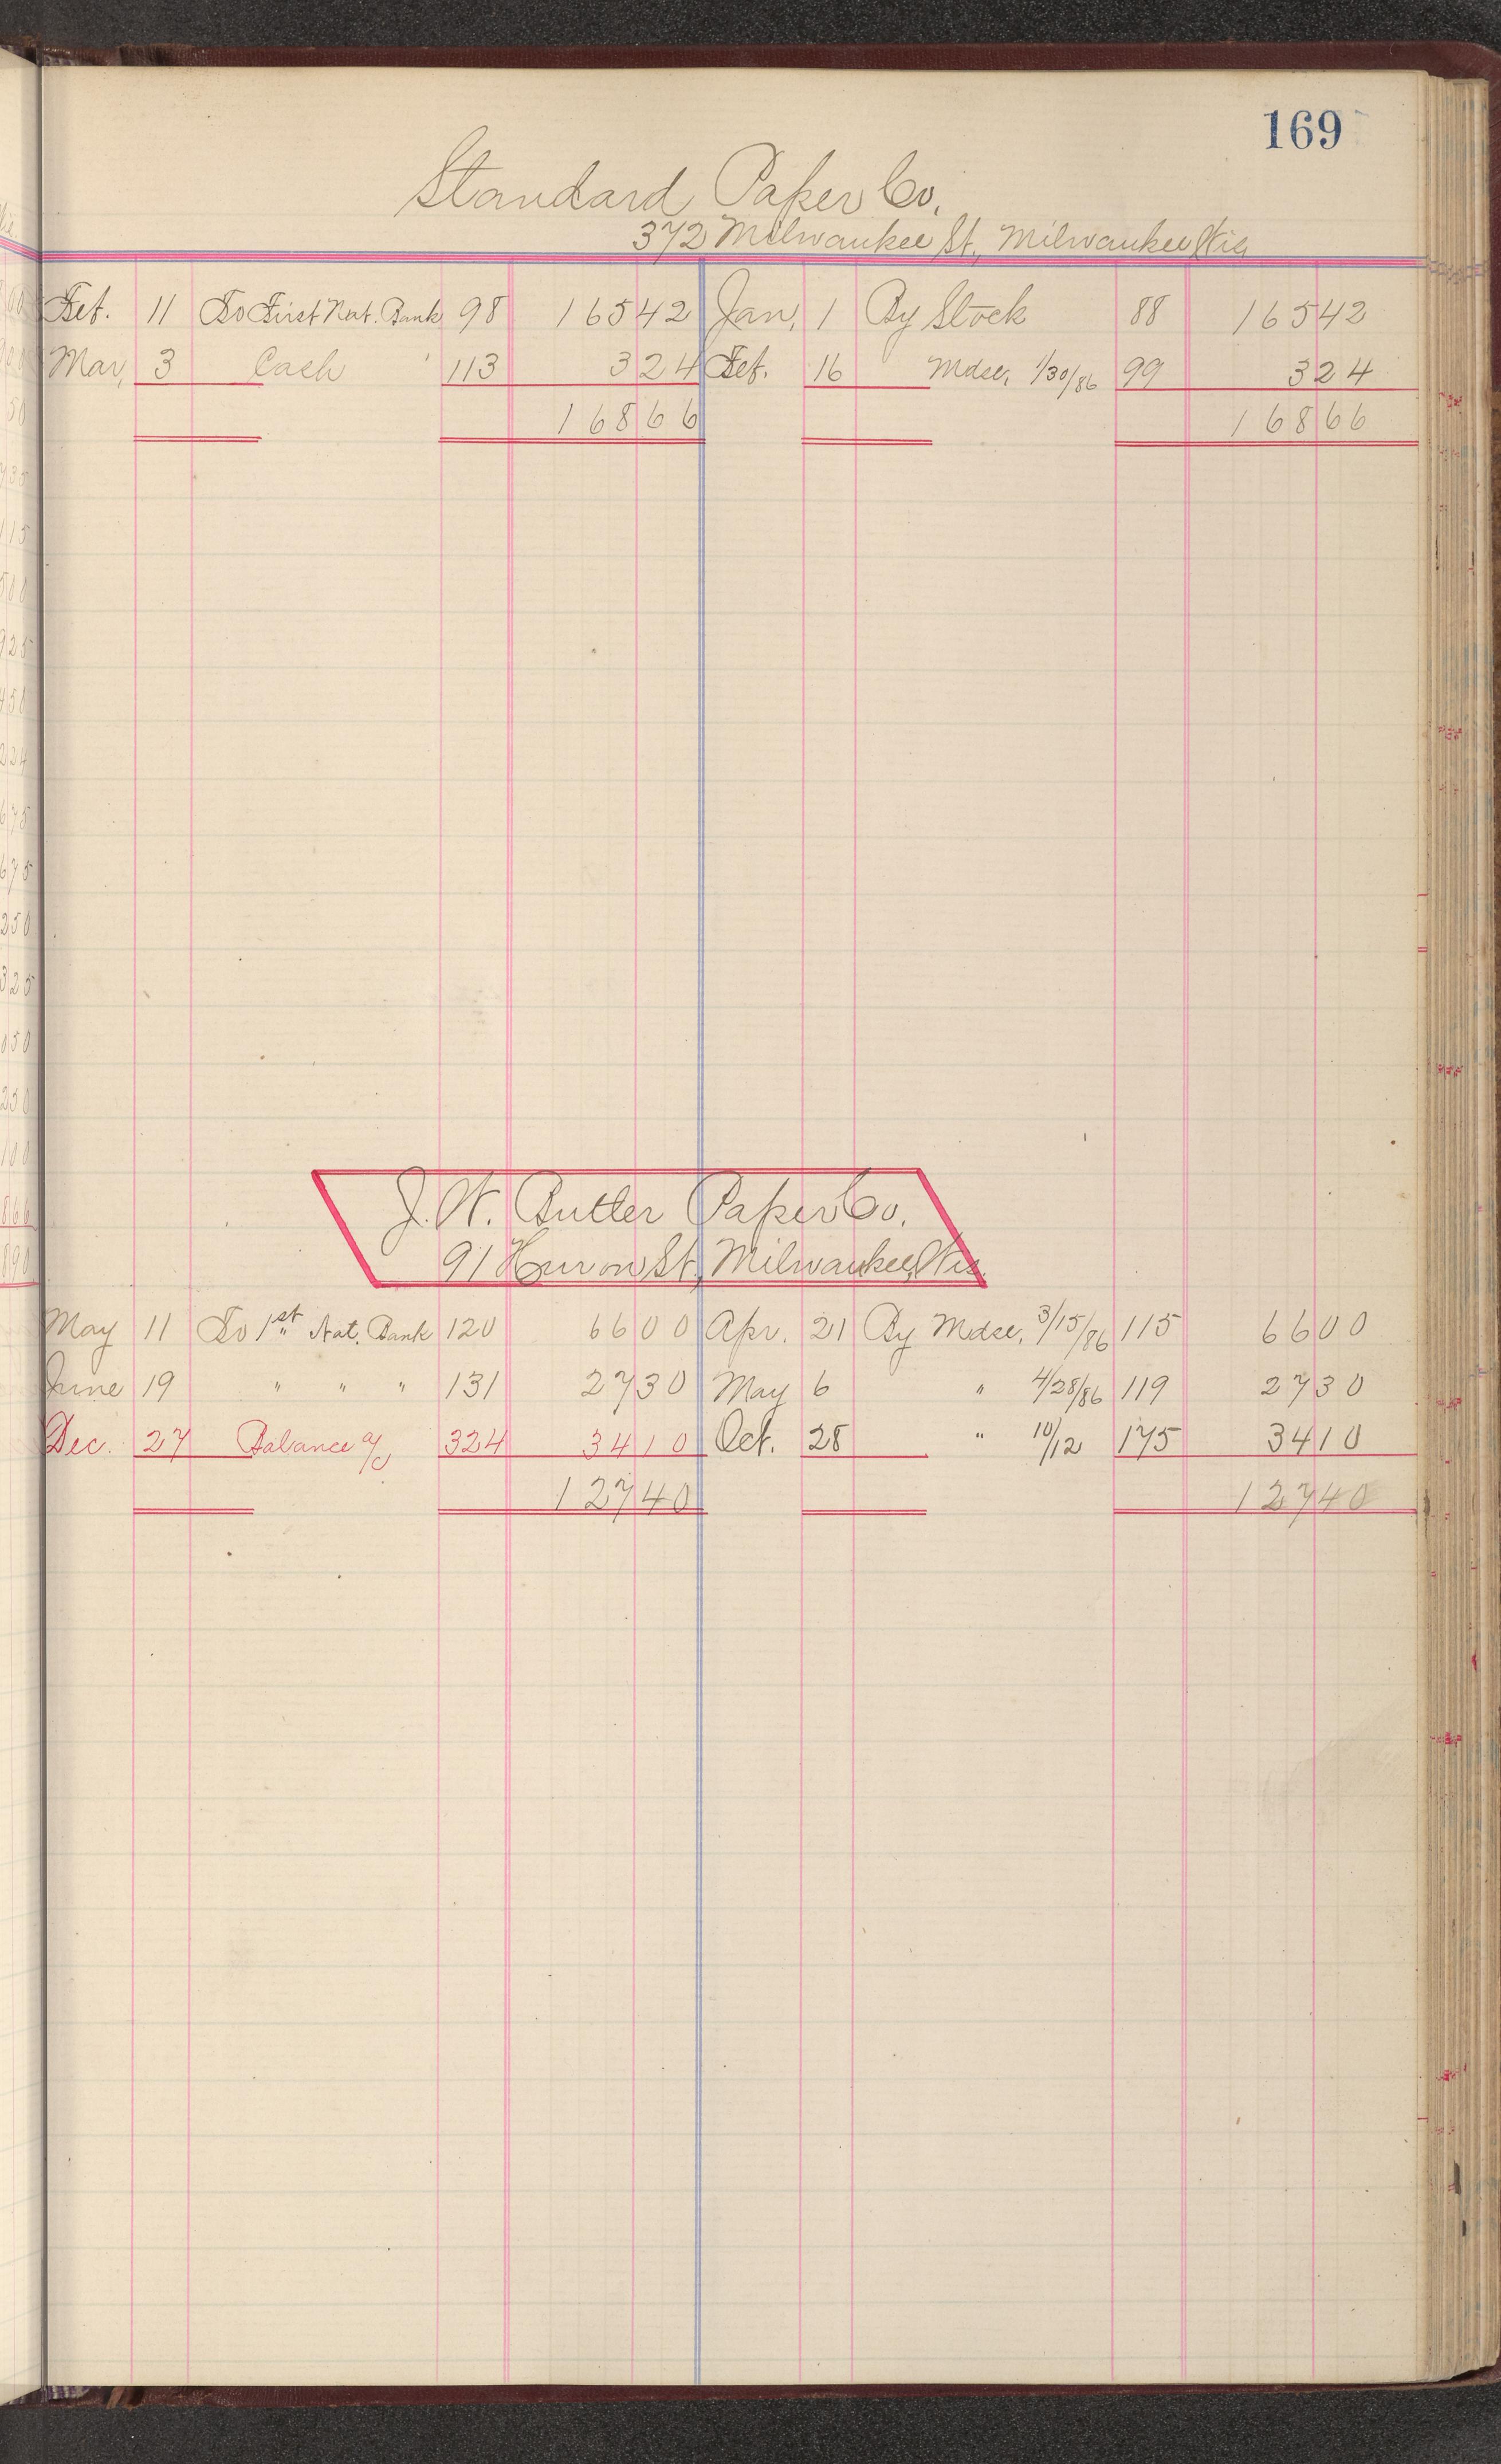 169
Standard Paper Co.
372 Milwaukee St., Milwaukee Wis.
Feb. 11 To First Nat. Bank 98 165 42 Jan. 1 By Stock 88 165 42
Mar. 3 Cash 113 3 24 Feb. 16 Mdse. 1/30/86 99 3 24
168 66 168 66
J. W. Butler Paper Co.
91 Huron St., Milwaukee, Wis.
May 11 To 1st Nat. Bank 120 66 00 Apr. 21 By Mdse. 3/15/86 115 66 00
June 19 " " " 131 27 30 May 6 " 4/28/86 119 27 30
Dec. 27 Balance a/c 324 34 10 Oct. 28 " 10/12 175 34 10
127 40 127 40